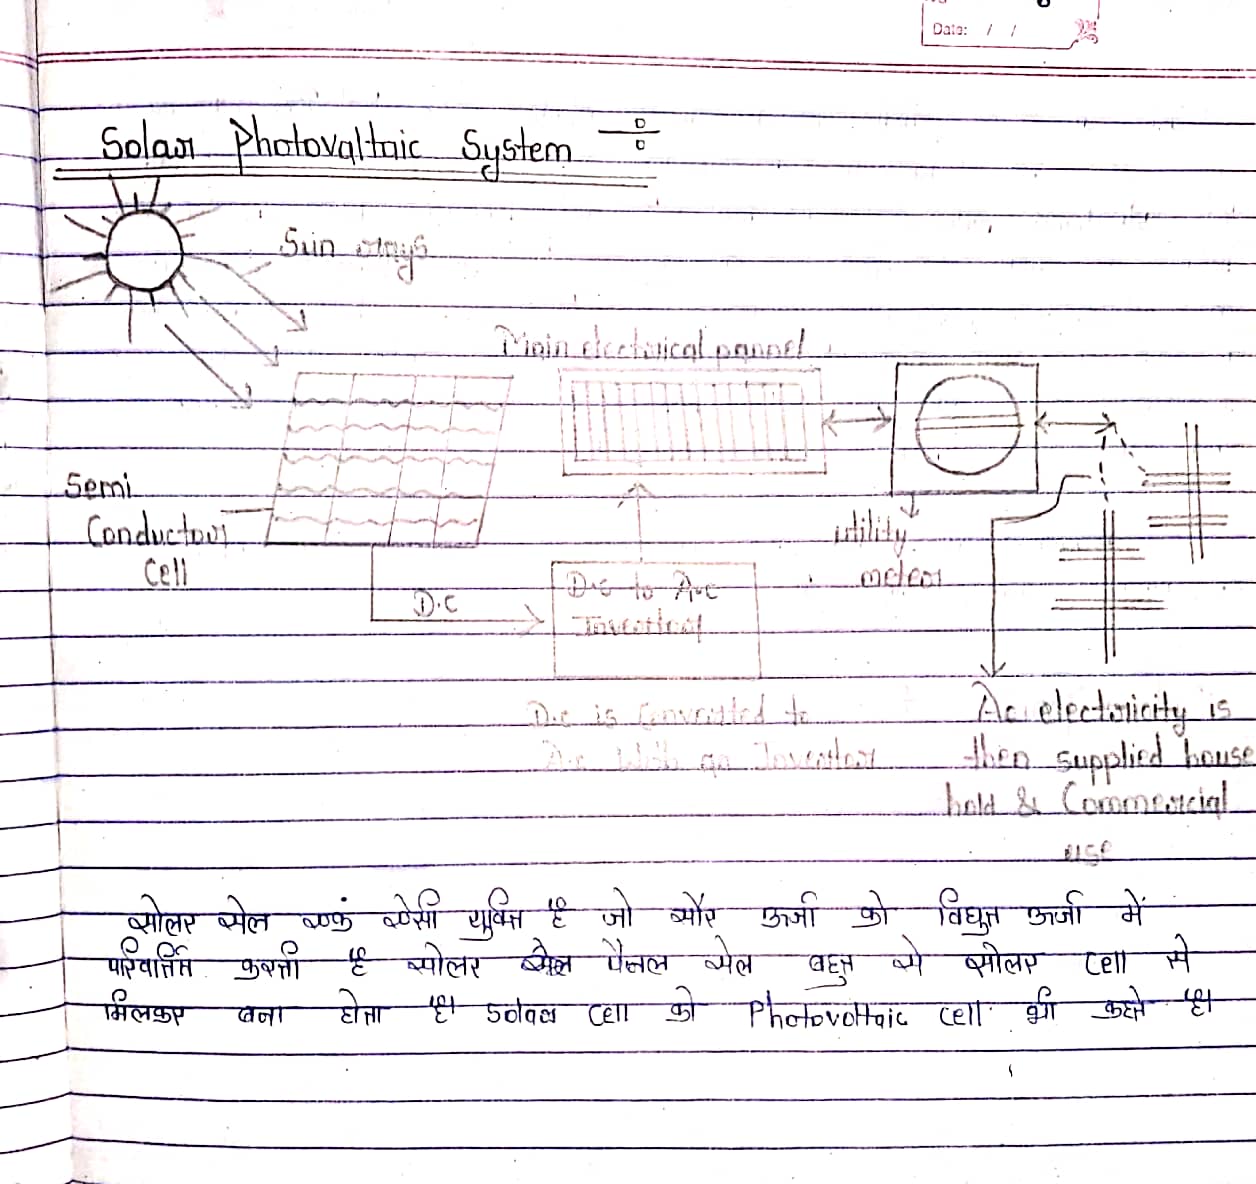 Date: / /
Solar Photovaltaic System ÷
Sun rays
Main electrical pannel
Semi
Conductor
Cell
D.C
D.C to A.C
Invertor
utility
meter
D.C is Converted to
A.C With an Inverter
Ac electricity is
then supplied house
hold & Commercial
use
सोलर सेल एक ऐसी युक्ति है जो सौर ऊर्जा को विधुत ऊर्जा में
परिवर्तित करती है सोलर पैनल सेल बहुत से सोलर cell से
मिलकर बना होता है। Solar cell को Photovoltaic cell भी कहते है।